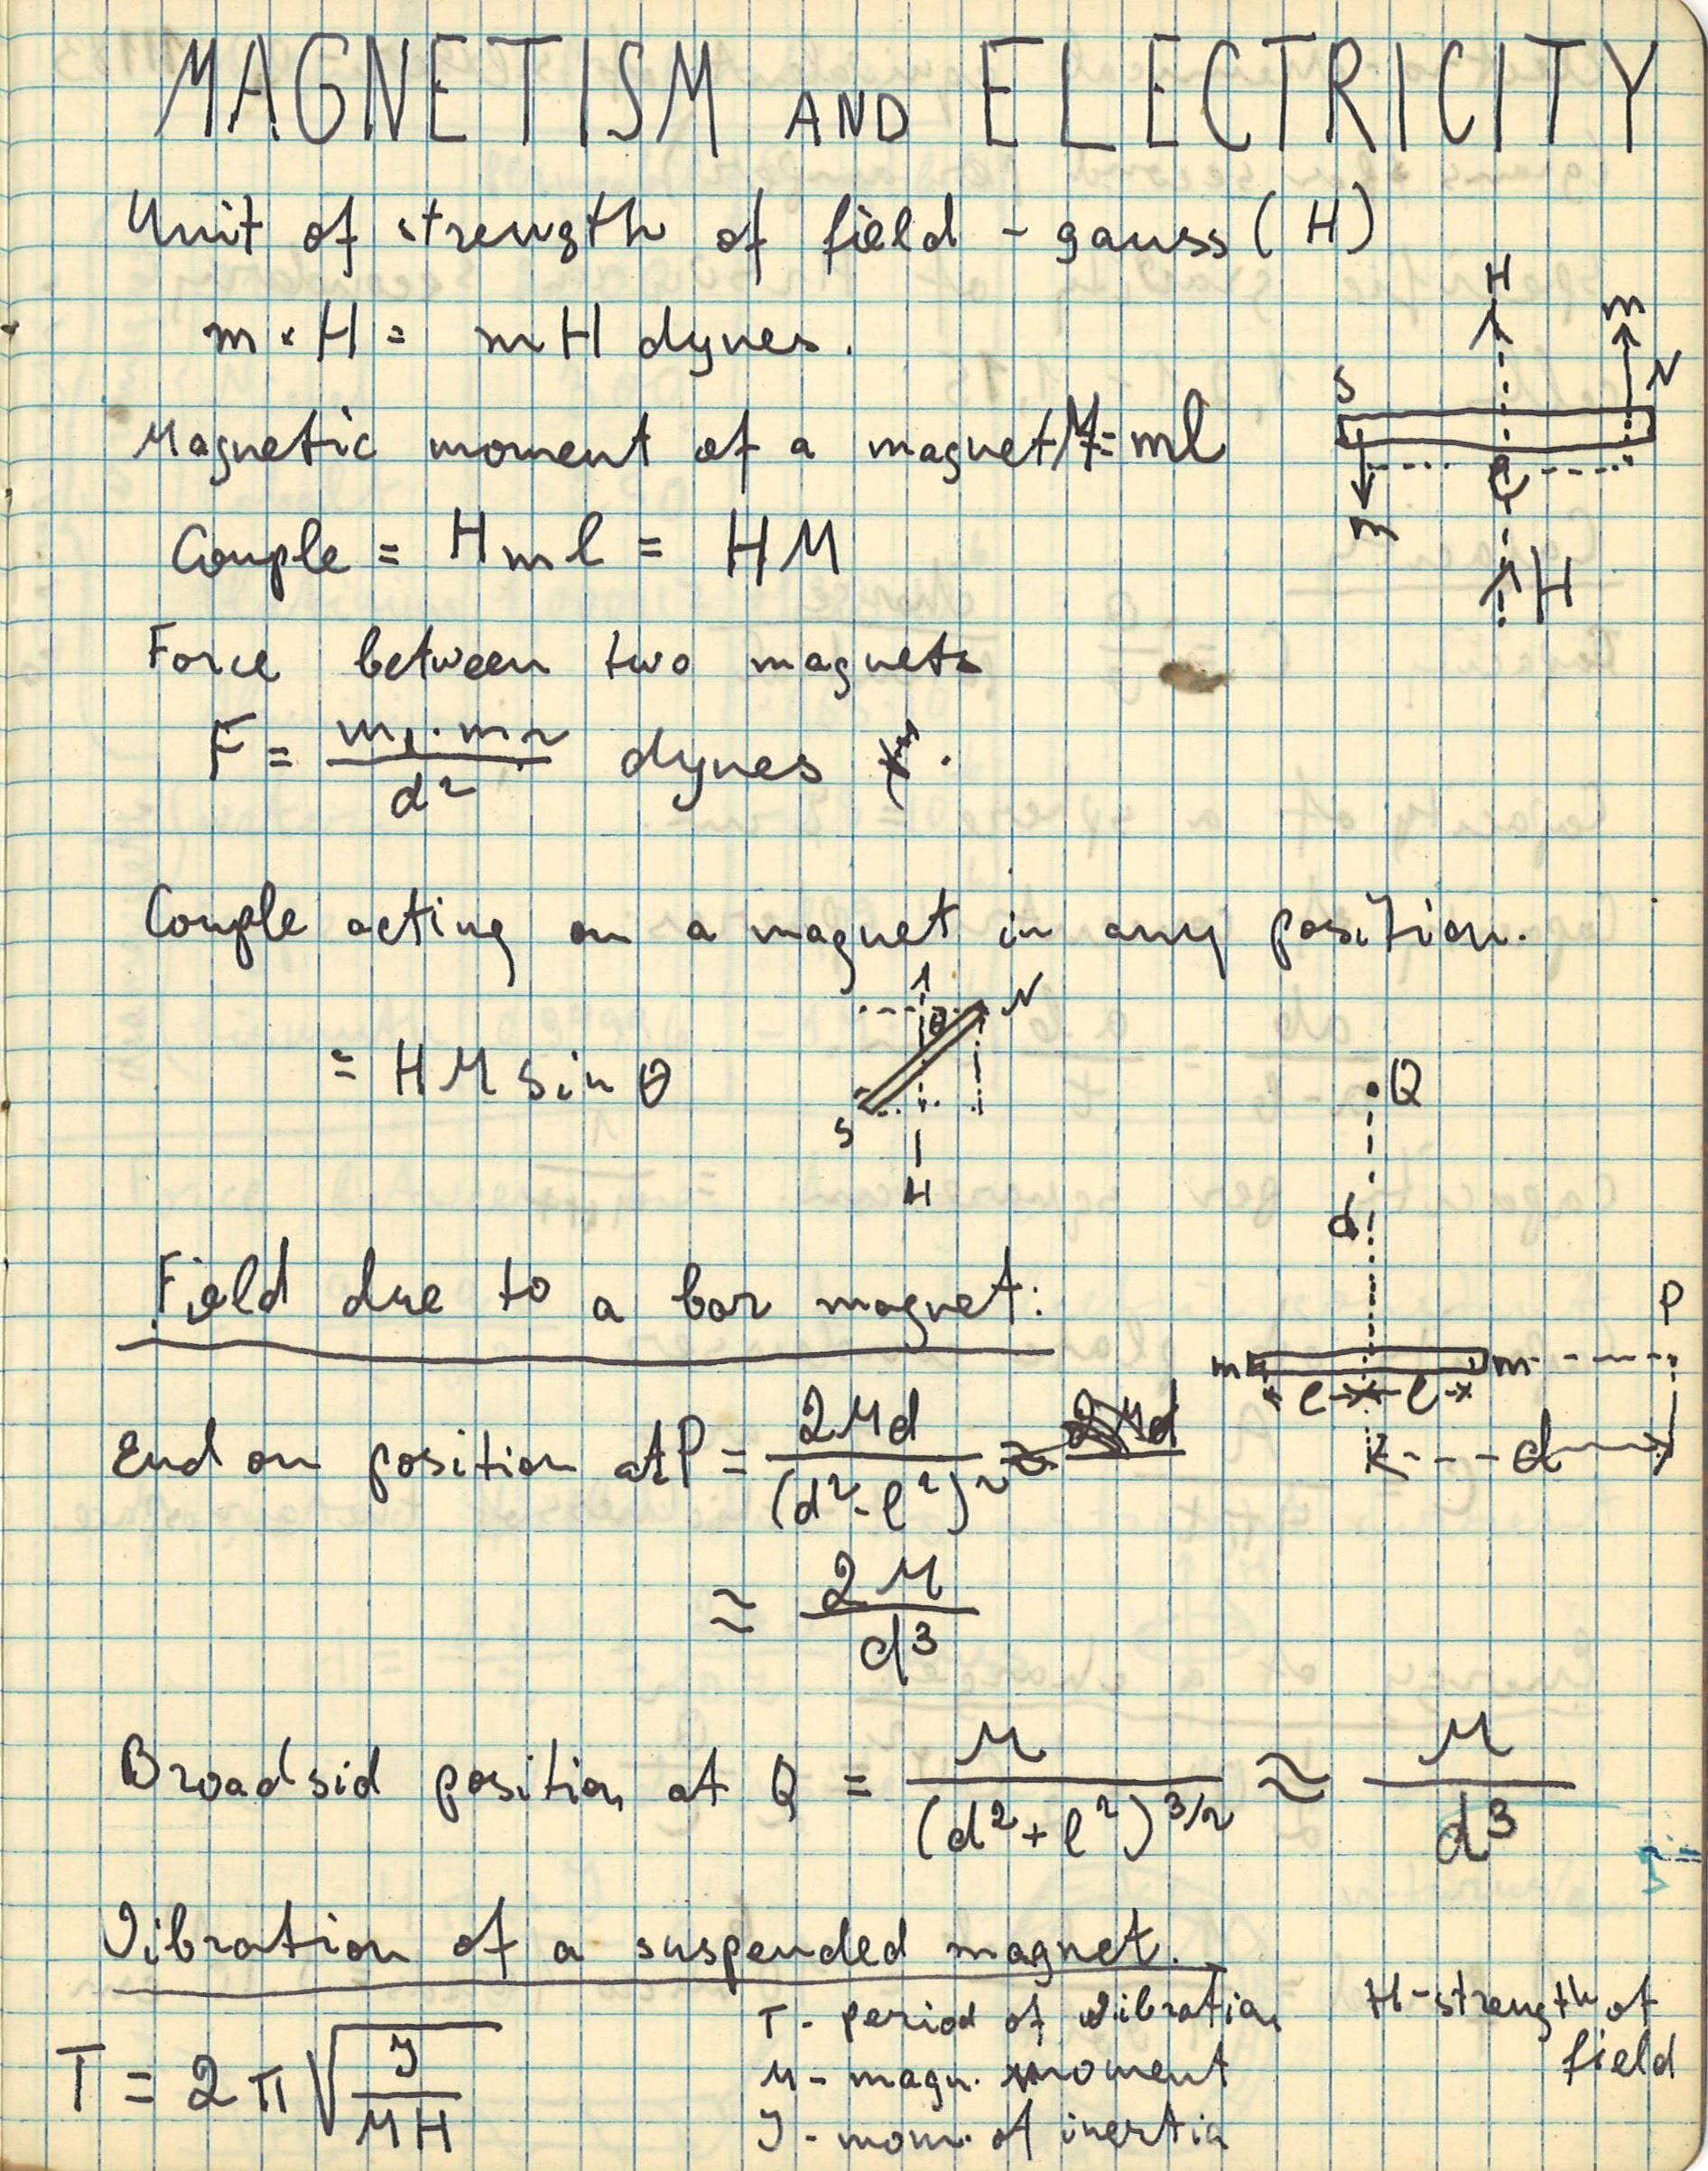 MAGNETISM AND ELECTRICITY
Unit of strength of field - gauss (H)
m × H = mH dynes.
Magnetic moment of a magnet M = ml
Couple = Hml = HM
H
m
S
N
l
m
H
Force between two magnets
F = m₁·m₂ / d² dynes
Couple acting on a magnet in any position.
= HM sin θ
N
θ
S
H
Q
d
P
m
m
l
l
d
Field due to a bar magnet:
End on position at P = 2Md / (d² - l²)²
≈ 2M / d³
Broadsid position at Q = M / (d² + l²)^3/2 ≈ M / d³
Vibration of a suspended magnet.
T = 2π √(J / MH)
T - period of vibration
M - magn. moment
J - mom. of inertia
H - strength of
field